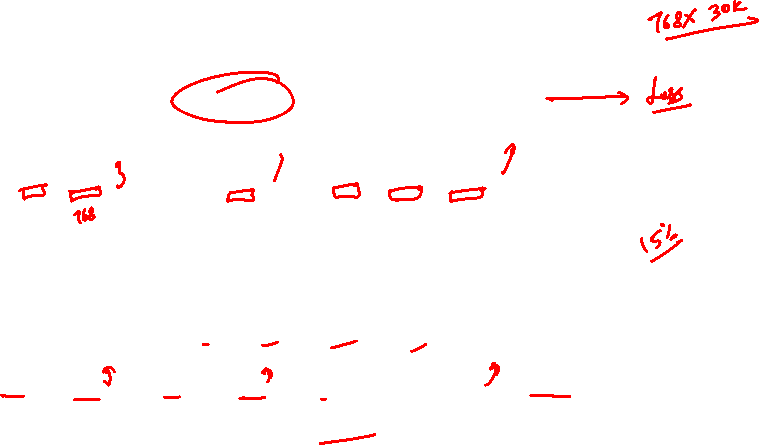 768X 30K
Loss
768
15%